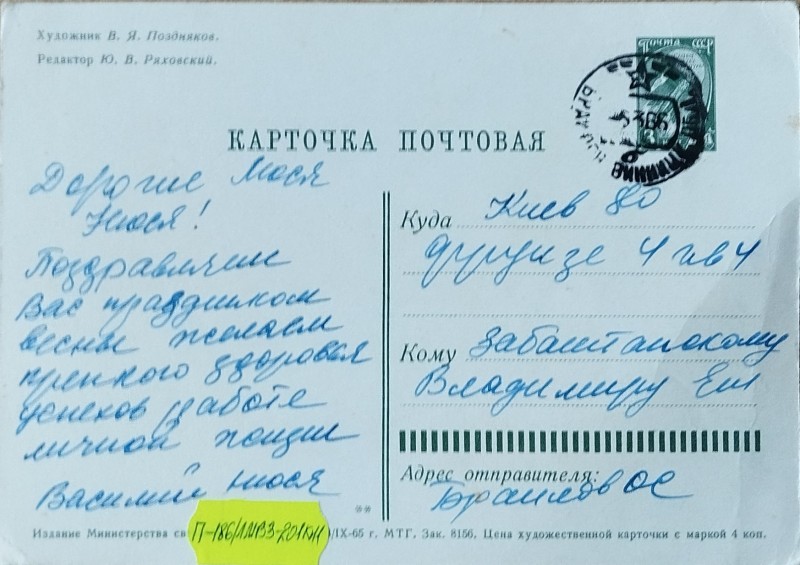 Художник В. Я. Поздняков.
Редактор Ю. В. Ряховский.
ПОЧТА СССР
КАРТОЧКА ПОЧТОВАЯ
Дорогие Мося
Нюся!
Поздравляем
Вас праздником
весны желаем
крепкого здоровья
успехов работе
личной жизни
Василий Нюся
Куда Киев 80
Фрунзе 4 кв 4
Кому Забаштанскому
Владимиру
Адрес отправителя:
Браилов
**
Издание Министерства св
П-186/
/IX-65 г. МТГ. Зак. 8156. Цена художественной карточки с маркой 4 коп.